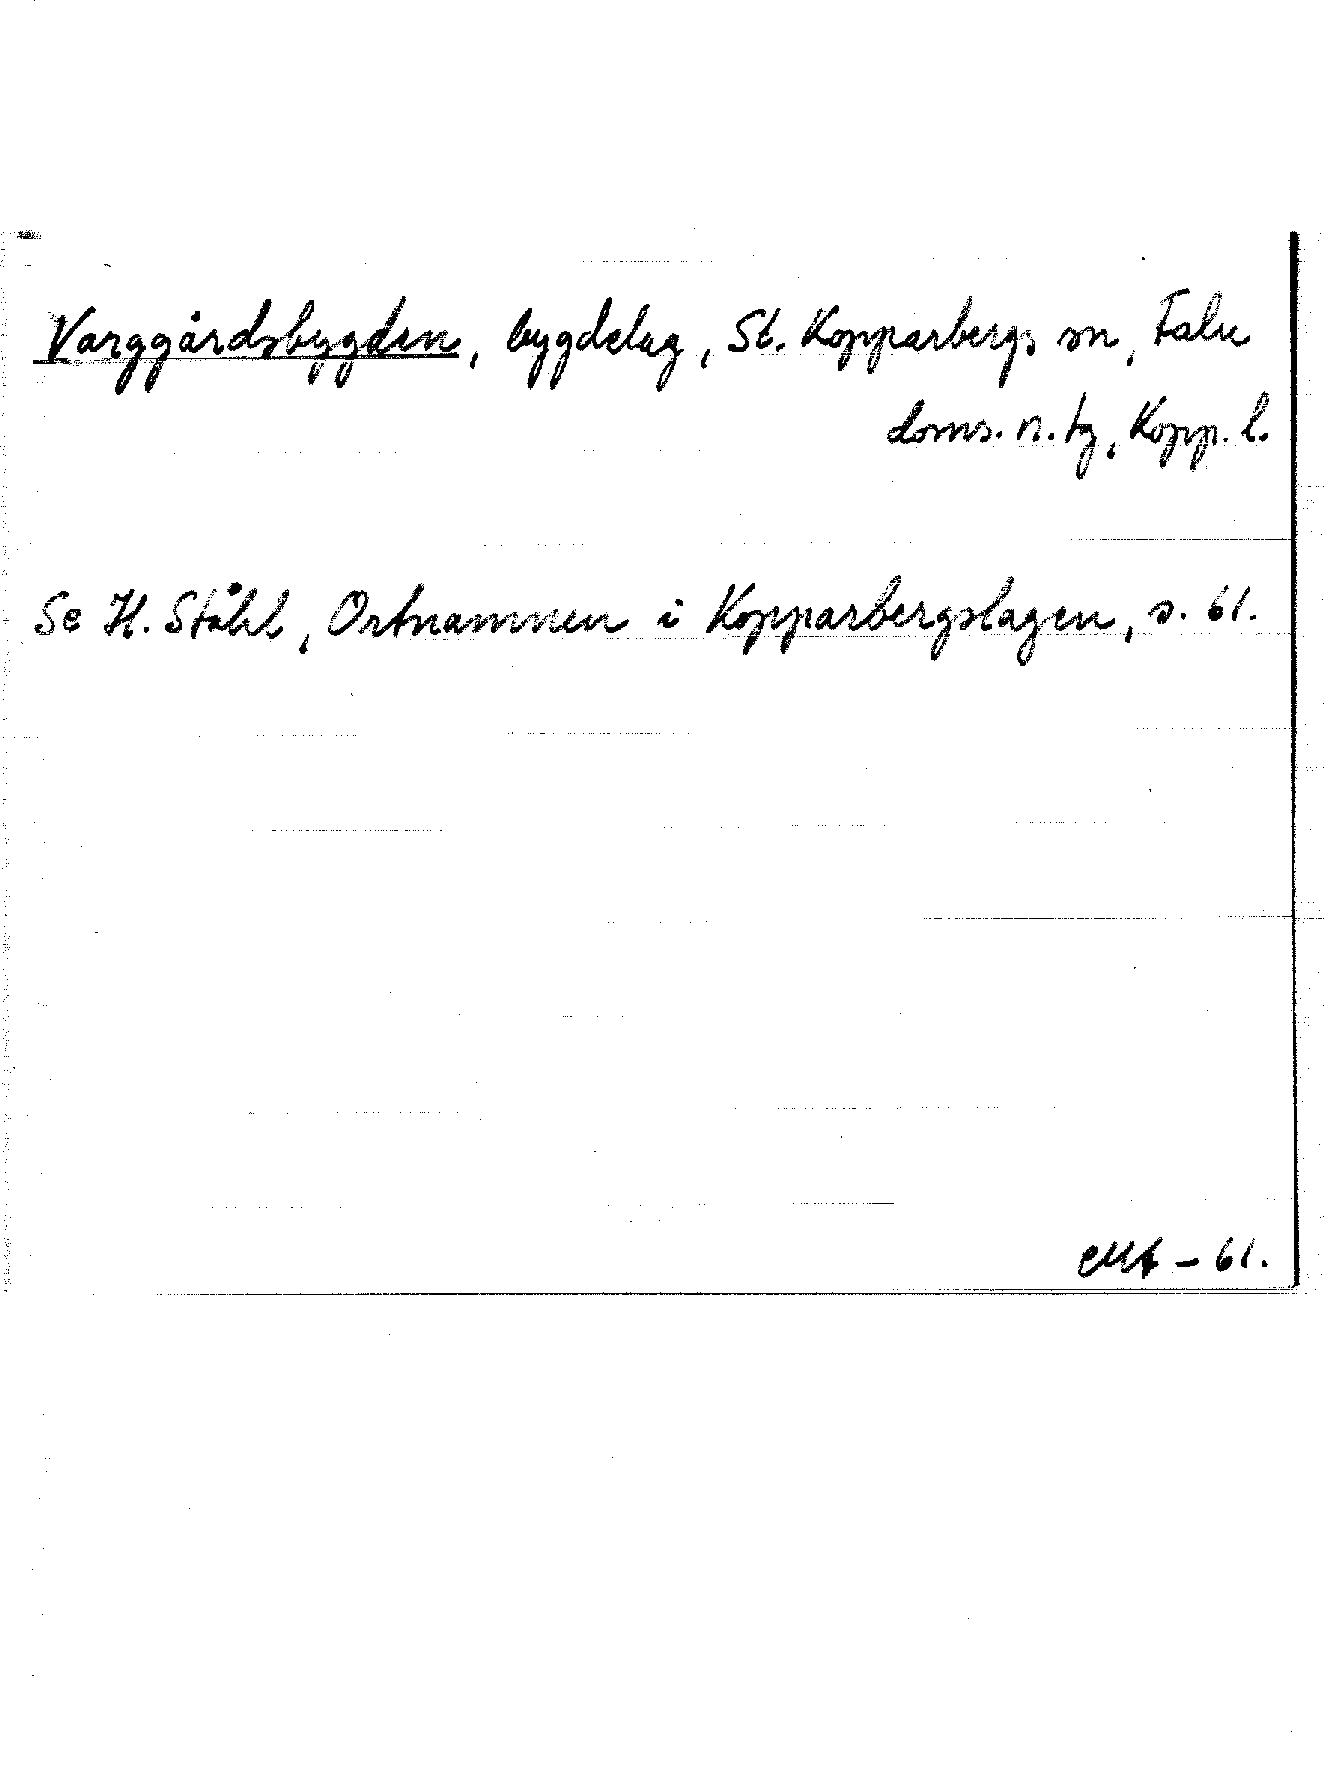 Varggårdsbygden, bygdelag, St. Kopparbergs sn, Falu
doms. n. tg, Kopp. l.
Se H. Ståhl, Ortnamnen i Kopparbergslagen, s. 61.
- 61.